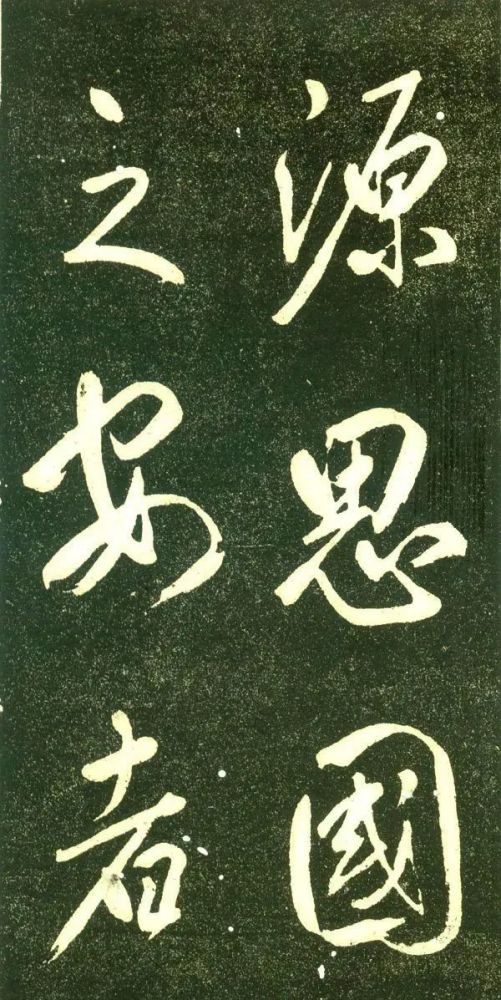 源思國
之安者